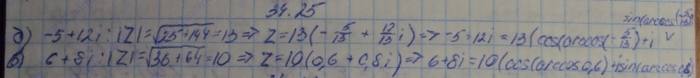 34.25
д) -5+12i : |Z|=√(25+144)=13 => Z=13(-5/13 + 12/13 i) => -5=12i=13(cos(arccos(-5/13)+i sin(arccos(-5/13)
в) 6+8i : |Z|=√(36+64)=10 => Z=10(0,6+0,8i) => 6+8i=10(cos(arccos0,6)+isin(arccos